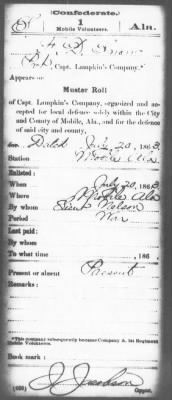 Confederate.
1
Mobile Volunteers.
Ala.
Pvt., Capt. Lumpkin's Company.*
Appears on
Muster Roll
of Capt. Lumpkin's Company, organized and ac-
cepted for local defence solely within the City
and County of Mobile, Ala., and for the defence
of said city and county,
for Dated July 20, 1863.
Station Mobile Ala
Enlisted:
When July 20, 1863.
Where Mobile Ala
By whom Lieut Nelson
Period War
Last paid:
By whom
To what time , 186 .
Present or absent Present
Remarks:
*This company subsequently became Company A, 1st Regiment
Mobile Volunteers.
Book mark:
J. Jackson
Copyist.